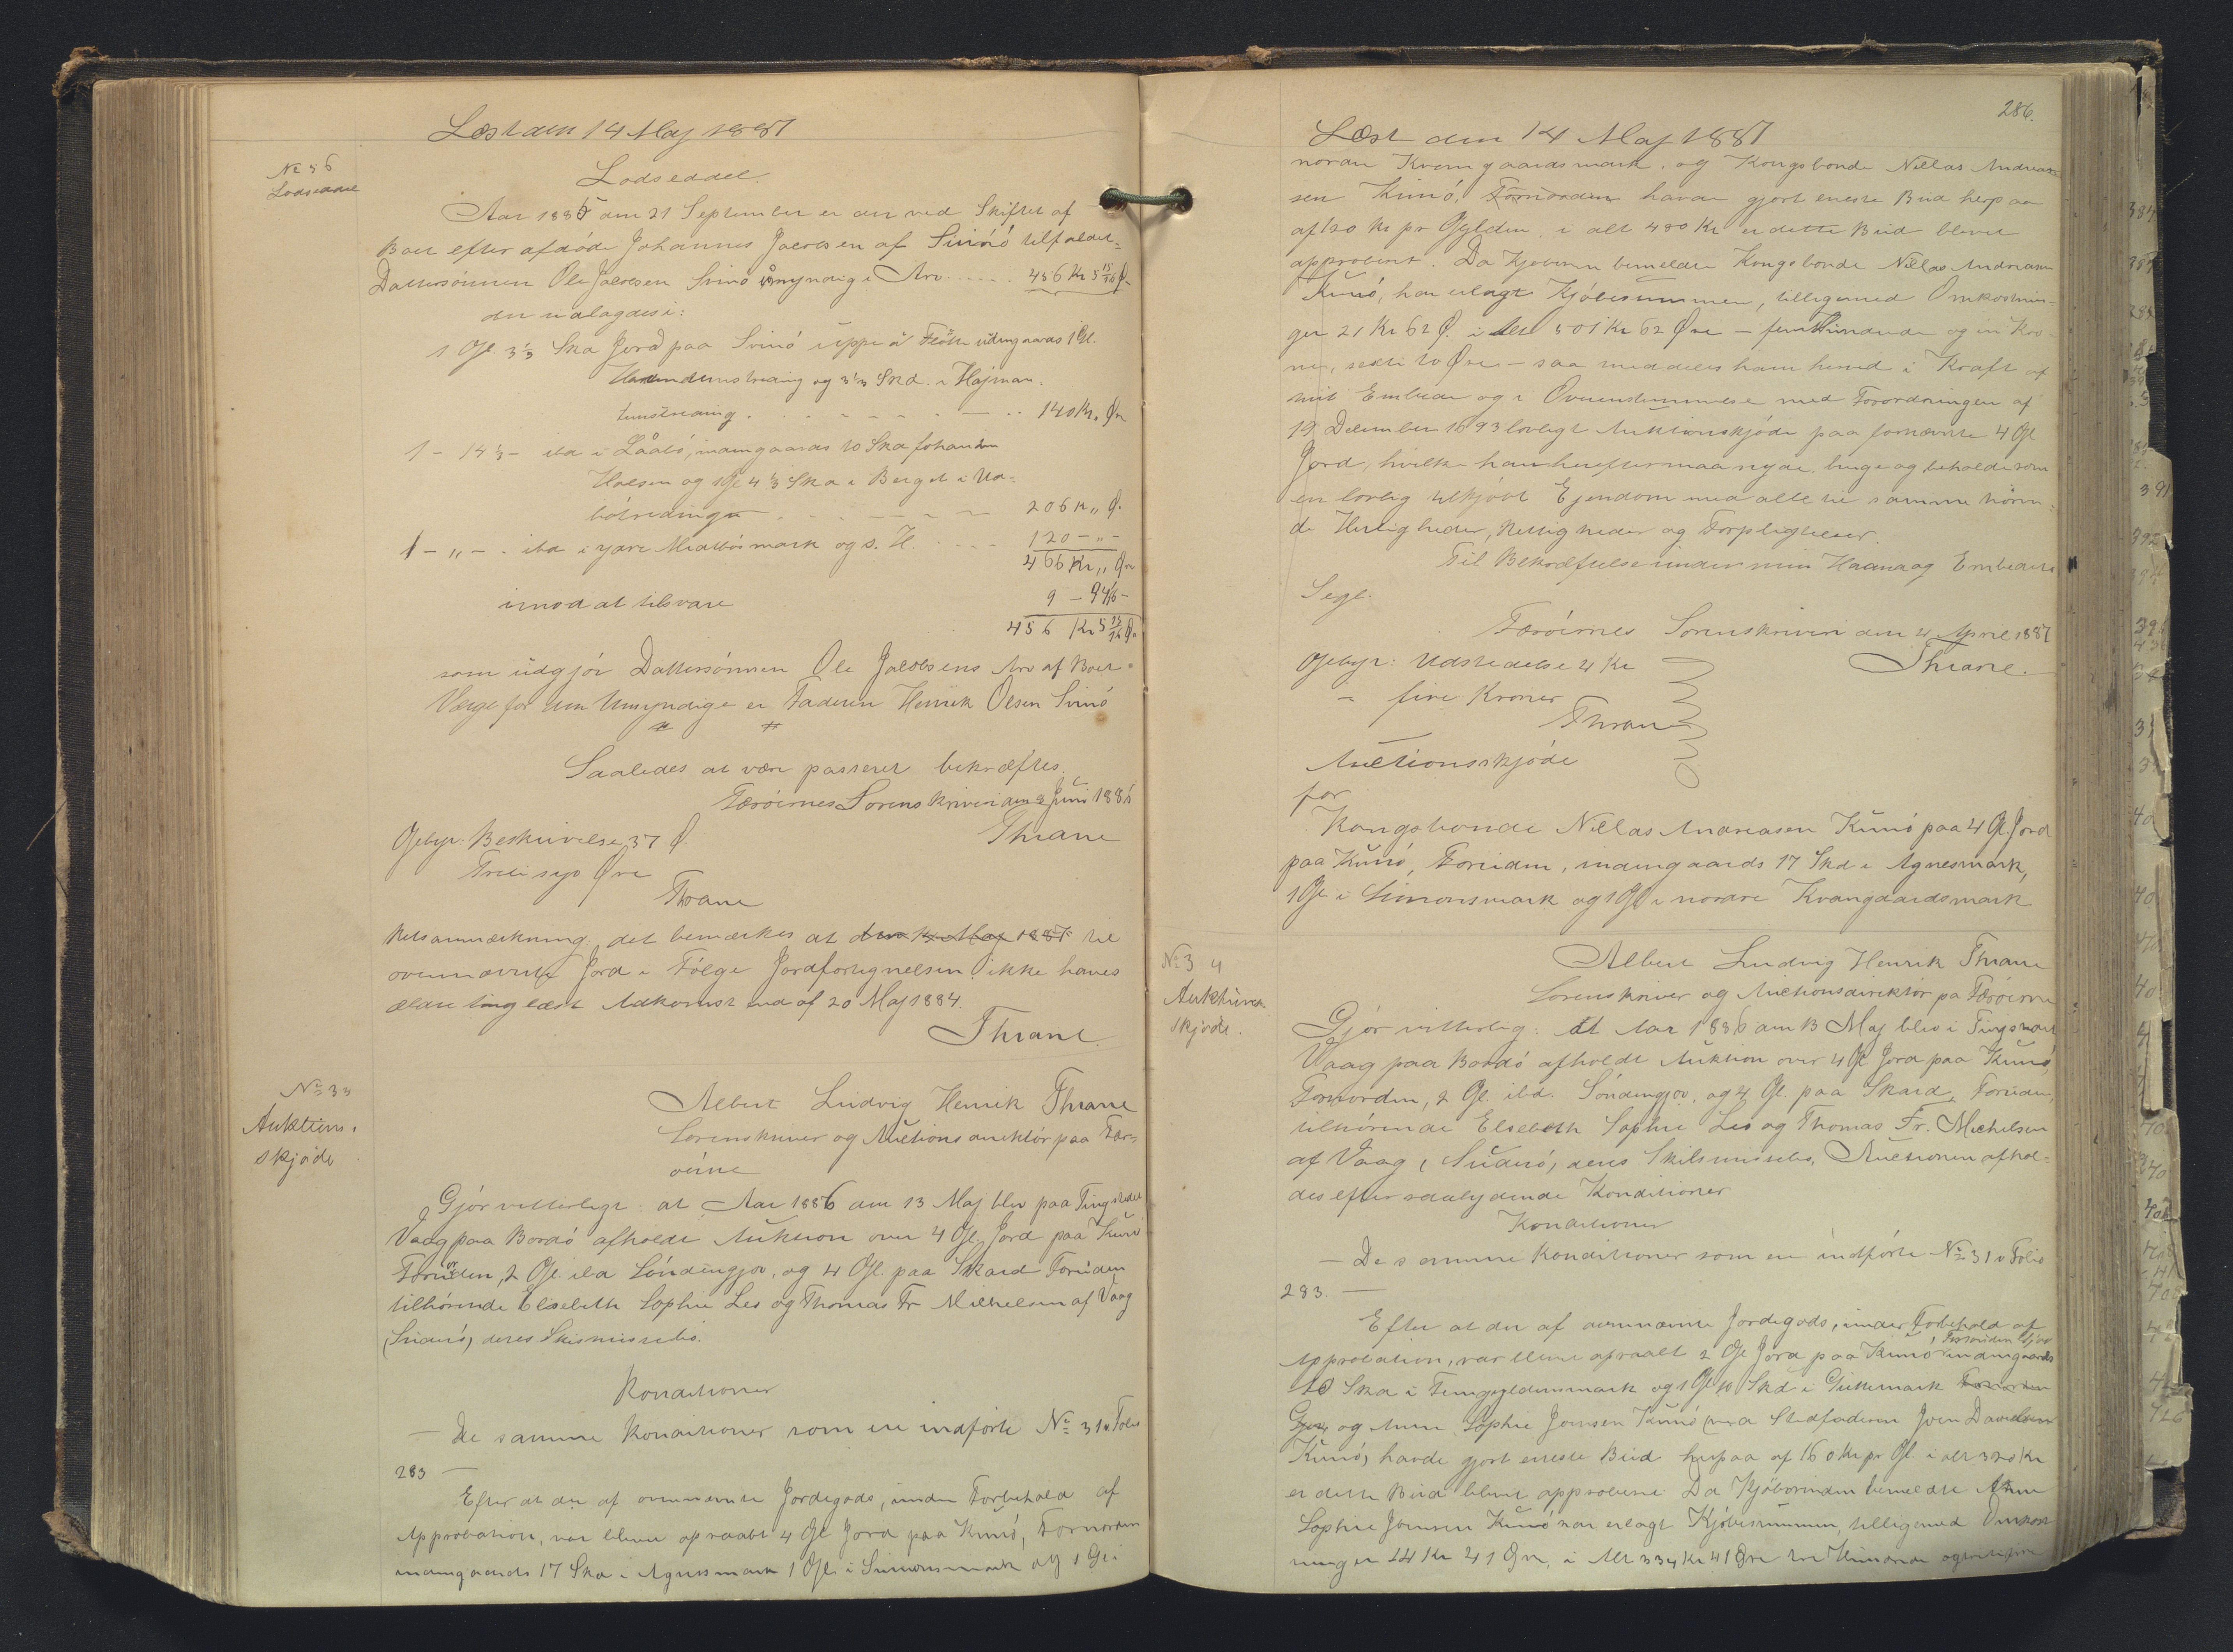 Læst den 14 Maj 1887
№ 56
Lodseddel
Lodseddel
Aar 1885 den 21 September er der ved Skiftet af
Boet efter afdøde Johannes Jacobsen af Svinó tilfaldet
Dattersönnen Ole Jacobsen Svinó umyndig i Arv 456 Kr 5 15/16 Ø
der udlagdes i:
1 Gl. 3 1/3 Skd Jord paa Svinó uppi á Fløtti udengaards 1 Gl.
og 3 1/3 Skd. i Hajman
140 Kr. Ør
1 - 14 1/3 - ibd i Låabó, indengaards 10 Skd Johannes
og 1 Gl 4 1/3 Skd i Berget i
206 Kr „ Ø.
1 - „ - . ibd i yare Midtbósmark og s. H. 120 - „ -
466 Kr „ Ør
imod at tilsvare 9 - 94 1/16 -
456 Kr 5 15/16 Ø.
som udgjör Dattersönnen Ole Jacobsens Arv af Boet.
Værge for den Umyndige er Faderen Henrik Olsen Svinó
Saaledes at være passeret bekræftes
Færöernes Sorenskriveri den 2 Juni 1886
Thrane
Gebyr: Beskrivelse 37 Ø.
Treti syv Øre
Thrane
Retsanmærkning, det bemærkes at den 14 Maj 1887 til
ovennævnte Jord i Følge Jordfortegnelsen ikke haves
ældre tinglæst Adkomst end af 20 Maj 1884.
Thrane
№ 33
Auktions-
skjøde
Albert Ludvig Henrik Thrane
Sorenskriver og Auctionsdirektör paa Fær-
öerne
Gjör vitterligt: at Aar 1886 den 13 Maj blev paa Tingstedet
Vaag paa Bordö afholdt Auktion over 4 Gl. Jord paa Kunó
Fornorden, 2 Gl. ibd Söndengjov, og 4 Gl. paa Skard Foruden
tilhörende Elsebeth Sophie Les og Thomas Fr Michelsen af Vaag
(Suderó) deres Skilsmissebo.
Konditioner
— De samme Konditioner som ere indförte № 31 Folio
283 —
Efter at der af ovennævnte Jordegods, under Forbehold af
Approbation, var blevet opraabt 4 Gl Jord paa Kunó, Fornorden
indengaards 17 Skd i Agnesmark 1 Gl. i Simonsmark og 1 Gl i
286.
Læst den 14 Maj 1887
nordre Kvangaardsmark, og Kongsbonde Niclas Andreas-
sen Kunó, Fornorden havde gjort eneste Bud herpaa
af 120 Kr pr Gylden, i alt 480 Kr er dette Bud blevet
approberet. Da Kjøberen bemeldte Kongsbonde Niclas Andreasen
Kunó, har erlagt Kjöbesummen, tilligemed Omkostnin-
ger 21 Kr 62 Ø. i Alt 501 Kr 62 Øre — fem Hundrede og en Kro-
ner, sexti to Øre — saa meddeles ham herved i Kraft af
mit Embede og i Overensstemmelse med Forordningen af
19 December 1693 lovligt Auktionsskjöde paa fornævnte 4 Gl
Jord, hvilke han herefter maa nyde, bruge og beholde som
en lovlig tilkjöbt Ejendom med alle til samme hören-
de Herligheder, Rettigheder og Forpligtelser.
Til Bekræftelse under min Haand og Embeds
Segl.
Færöernes Sorenskriveri den 4 April 1887
Thrane.
Gebyr: Udstedelse 4 Kr
- fire Kroner
Thrane
Auctionsskjöde
for
Kongsbonde Niclas Andreasen Kunó paa 4 Gl. Jord
paa Kunó, Foruden, indengaards 17 Skd i Agnesmark,
1 Gl. i Simonsmark og 1 Gl i nordre Kvangaardsmark
№ 34
Auktions
skjøde.
Albert Ludvig Henrik Thrane
Sorenskriver og Auctionsdirektör pa Færöerne
Gjör vitterlig: At Aar 1886 den 13 Maj blev i Tingstedet
Vaag paa Bordó afholdt Auktion over 4 Gl Jord paa Kunó
Fornorden, 2 Gl. ibd. Söndengjov, og 4 Gl. paa Skard, Foruden,
tilhörende Elsebeth Sophie Les og Thomas Fr. Michelsen
af Vaag (Suderó) deres Skilsmissebo, Auctionen afhol-
des efter saalydende Konditioner
Konditioner
— De samme Konditioner som ere indförte № 31 Folio
283. —
Efter at der af ovennævnte Jordegods, under Forbehold af
Approbation, var blevet opraabt 2 Gl Jord paa Kunó, indengaards
10 Skd i Femgyldensmark og 1 Gl 10 Skd i Gittemark Fornorden
og Anne Sophie Joensen Kunó (ved Stedfaderen Joen Davidsen
Kunó) havde gjort eneste Bud herpaa af 160 Kr pr Gl. i alt 320 Kr
er dette Bud blevet approberet. Da Kjöberinden bemeldte Anne
Sophie Joensen Kunó har erlagt Kjöbesummen, tilligemed Omkost
ninger 14 Kr 41 Øre, i Alt 334 Kr 41 Øre tre Hundrede